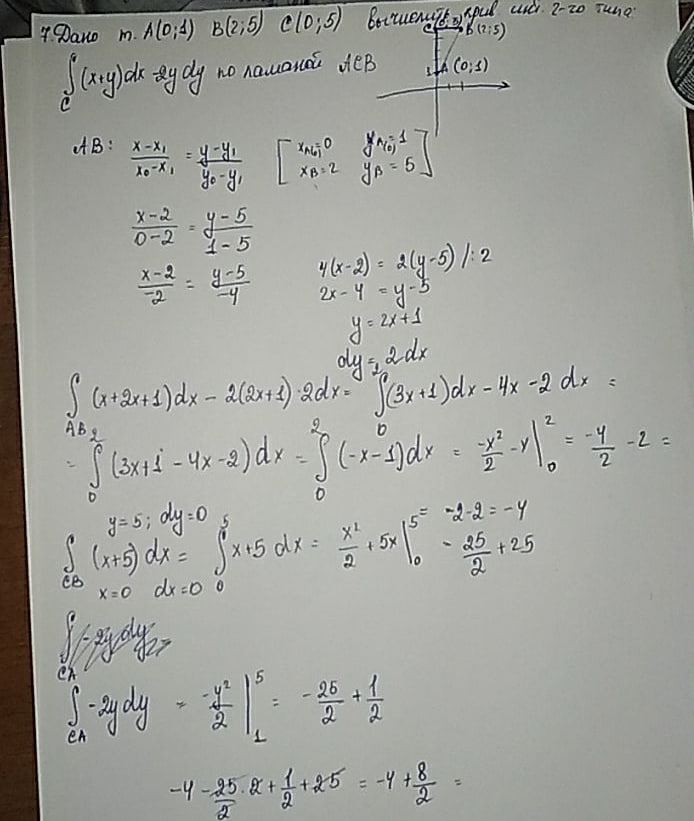 7. Дано т. A(0;1) B(2;5) C(0;5) вычислить крив. инт. 2-го типа
∫ (x+y)dx - 2y dy по ламаной ACB
C
B(2;5)
1 A (0;1)
AB: (x-x₁)/(x₀-x₁) = (y-y₁)/(y₀-y₁) [x_A(0)=0 y_A(0)=1
x_B=2 y_B=5]
(x-2)/(0-2) = (y-5)/(1-5)
(x-2)/(-2) = (y-5)/(-4) 4(x-2) = 2(y-5) /:2
2x-4 = y-5
y = 2x+1
dy = 2dx
∫_AB (x+2x+1)dx - 2(2x+1)·2dx = ∫_0^2 (3x+1)dx - 4x - 2 dx =
= ∫_0^2 (3x+1-4x-2)dx = ∫_0^2 (-x-1)dx = -x²/2 - x |_0^2 = -4/2 - 2 =
= -2-2 = -4
y=5; dy=0
∫_CB (x+5)dx = ∫_0^5 x+5 dx = x²/2 + 5x |_0^5 = 25/2 + 25
x=0 dx=0
∫_CA -2y dy =
∫_CA -2y dy = -y²/2 |_1^5 = -25/2 + 1/2
-4 - 25/2 · 2 + 1/2 + 25 = -4 + 8/2 =